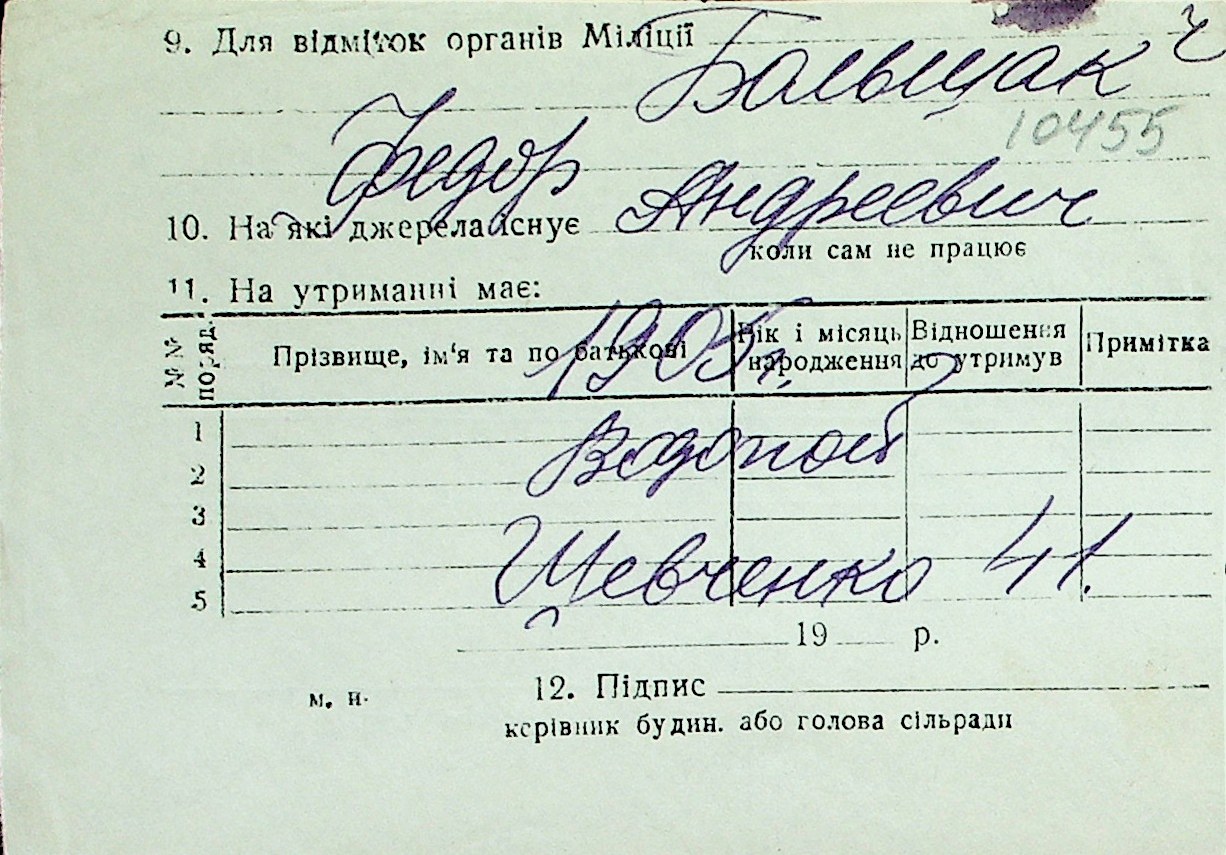 9. Для відміток органів Міліції
Бальщак ч
10455
Федор Андреевич
10. На які джерела існує
коли сам не працює
11. На утриманні має:
№ № поряд.
Прізвище, ім'я та по батькові
Рік і місяць народження
Відношення до утримув
Примітка
1905 г.
1
Водопой
2
3
4
Шевченко 41.
5
19 р.
м. п.
12. Підпис
керівник будин. або голова сільради